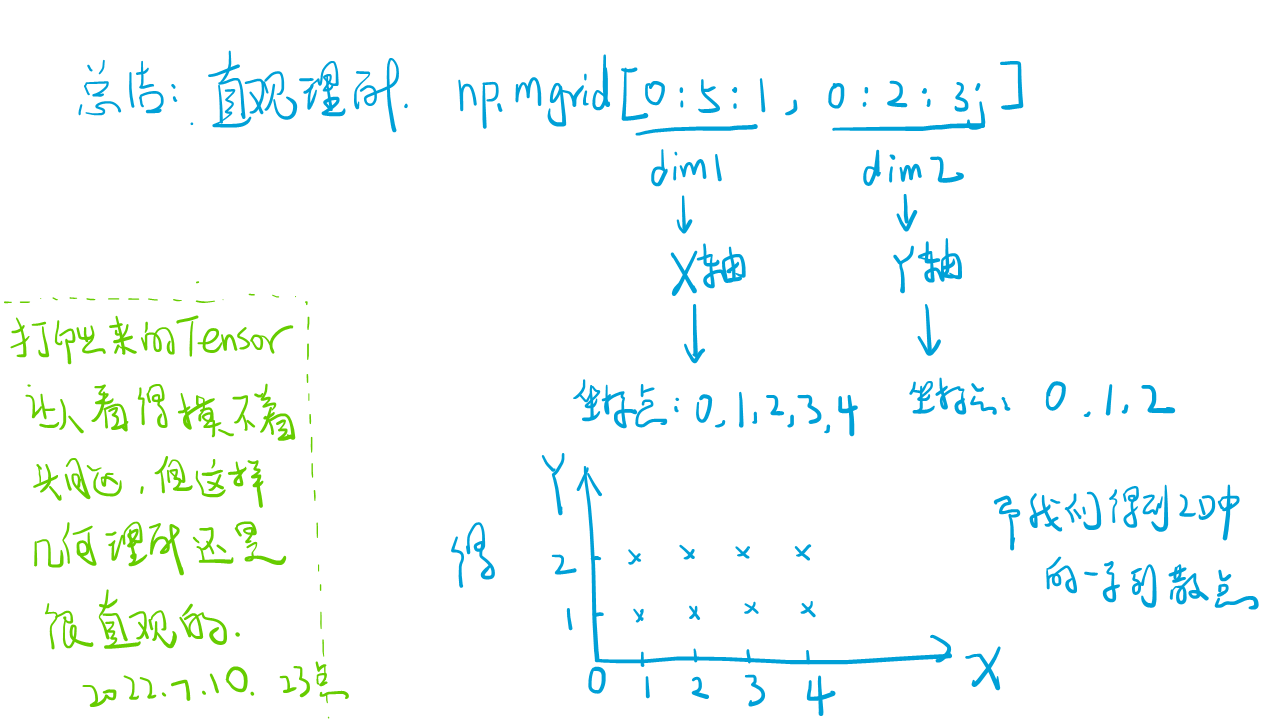 总结: 直观理解. np.mgrid[0:5:1, 0:2:3j]
dim1 dim2
X轴 Y轴
坐标点: 0,1,2,3,4 坐标点: 0,1,2
打印出来的Tensor
让人看得摸不着
头问远,但这样
几何理解还是
很直观的.
2022.7.10. 23点
得
Y
2
1
0 1 2 3 4 X
予我们得到2D中
的一系列散点